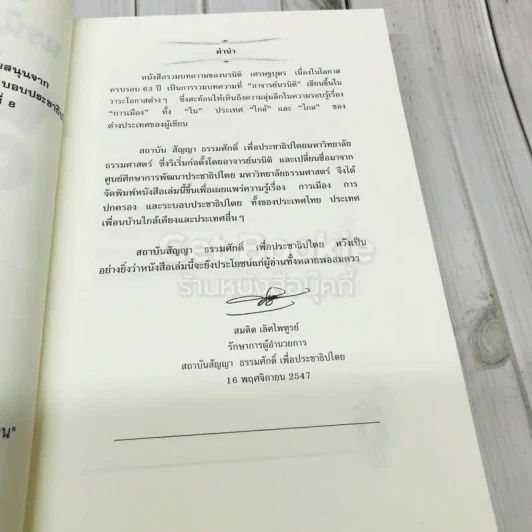 คำนำ
หนังสือรวมบทความของนรนิติ เศรษฐบุตร เนื่องในโอกาส
ครบรอบ 63 ปี เป็นการรวมบทความที่ "อาจารย์นรนิติ" เขียนขึ้นใน
วาระโอกาสต่างๆ ซึ่งสะท้อนให้เห็นถึงความลุ่มลึกในความรอบรู้เรื่อง
"การเมือง" ทั้ง "ใน" ประเทศ "ใกล้" และ "ไกล" ของ
ต่างประเทศของผู้เขียน
สถาบัน สัญญา ธรรมศักดิ์ เพื่อประชาธิปไตยมหาวิทยาลัย
ธรรมศาสตร์ ซึ่งริเริ่มก่อตั้งโดยอาจารย์นรนิติ และเปลี่ยนชื่อมาจาก
ศูนย์ศึกษาการพัฒนาประชาธิปไตย มหาวิทยาลัยธรรมศาสตร์ จึงได้
จัดพิมพ์หนังสือเล่มนี้ขึ้นเพื่อเผยแพร่ความรู้เรื่อง การเมือง การ
ปกครอง และระบอบประชาธิปไตย ทั้งของประเทศไทย ประเทศ
เพื่อนบ้านใกล้เคียงและประเทศอื่นๆ
สถาบันสัญญา ธรรมศักดิ์ เพื่อประชาธิปไตย หวังเป็น
อย่างยิ่งว่าหนังสือเล่มนี้จะยังประโยชน์แก่ผู้อ่านทั้งหลายพอสมควร
ร้านหนังสือบุ๊คกี้
สมคิด เลิศไพฑูรย์
รักษาการผู้อำนวยการ
สถาบันสัญญา ธรรมศักดิ์ เพื่อประชาธิปไตย
16 พฤศจิกายน 2547